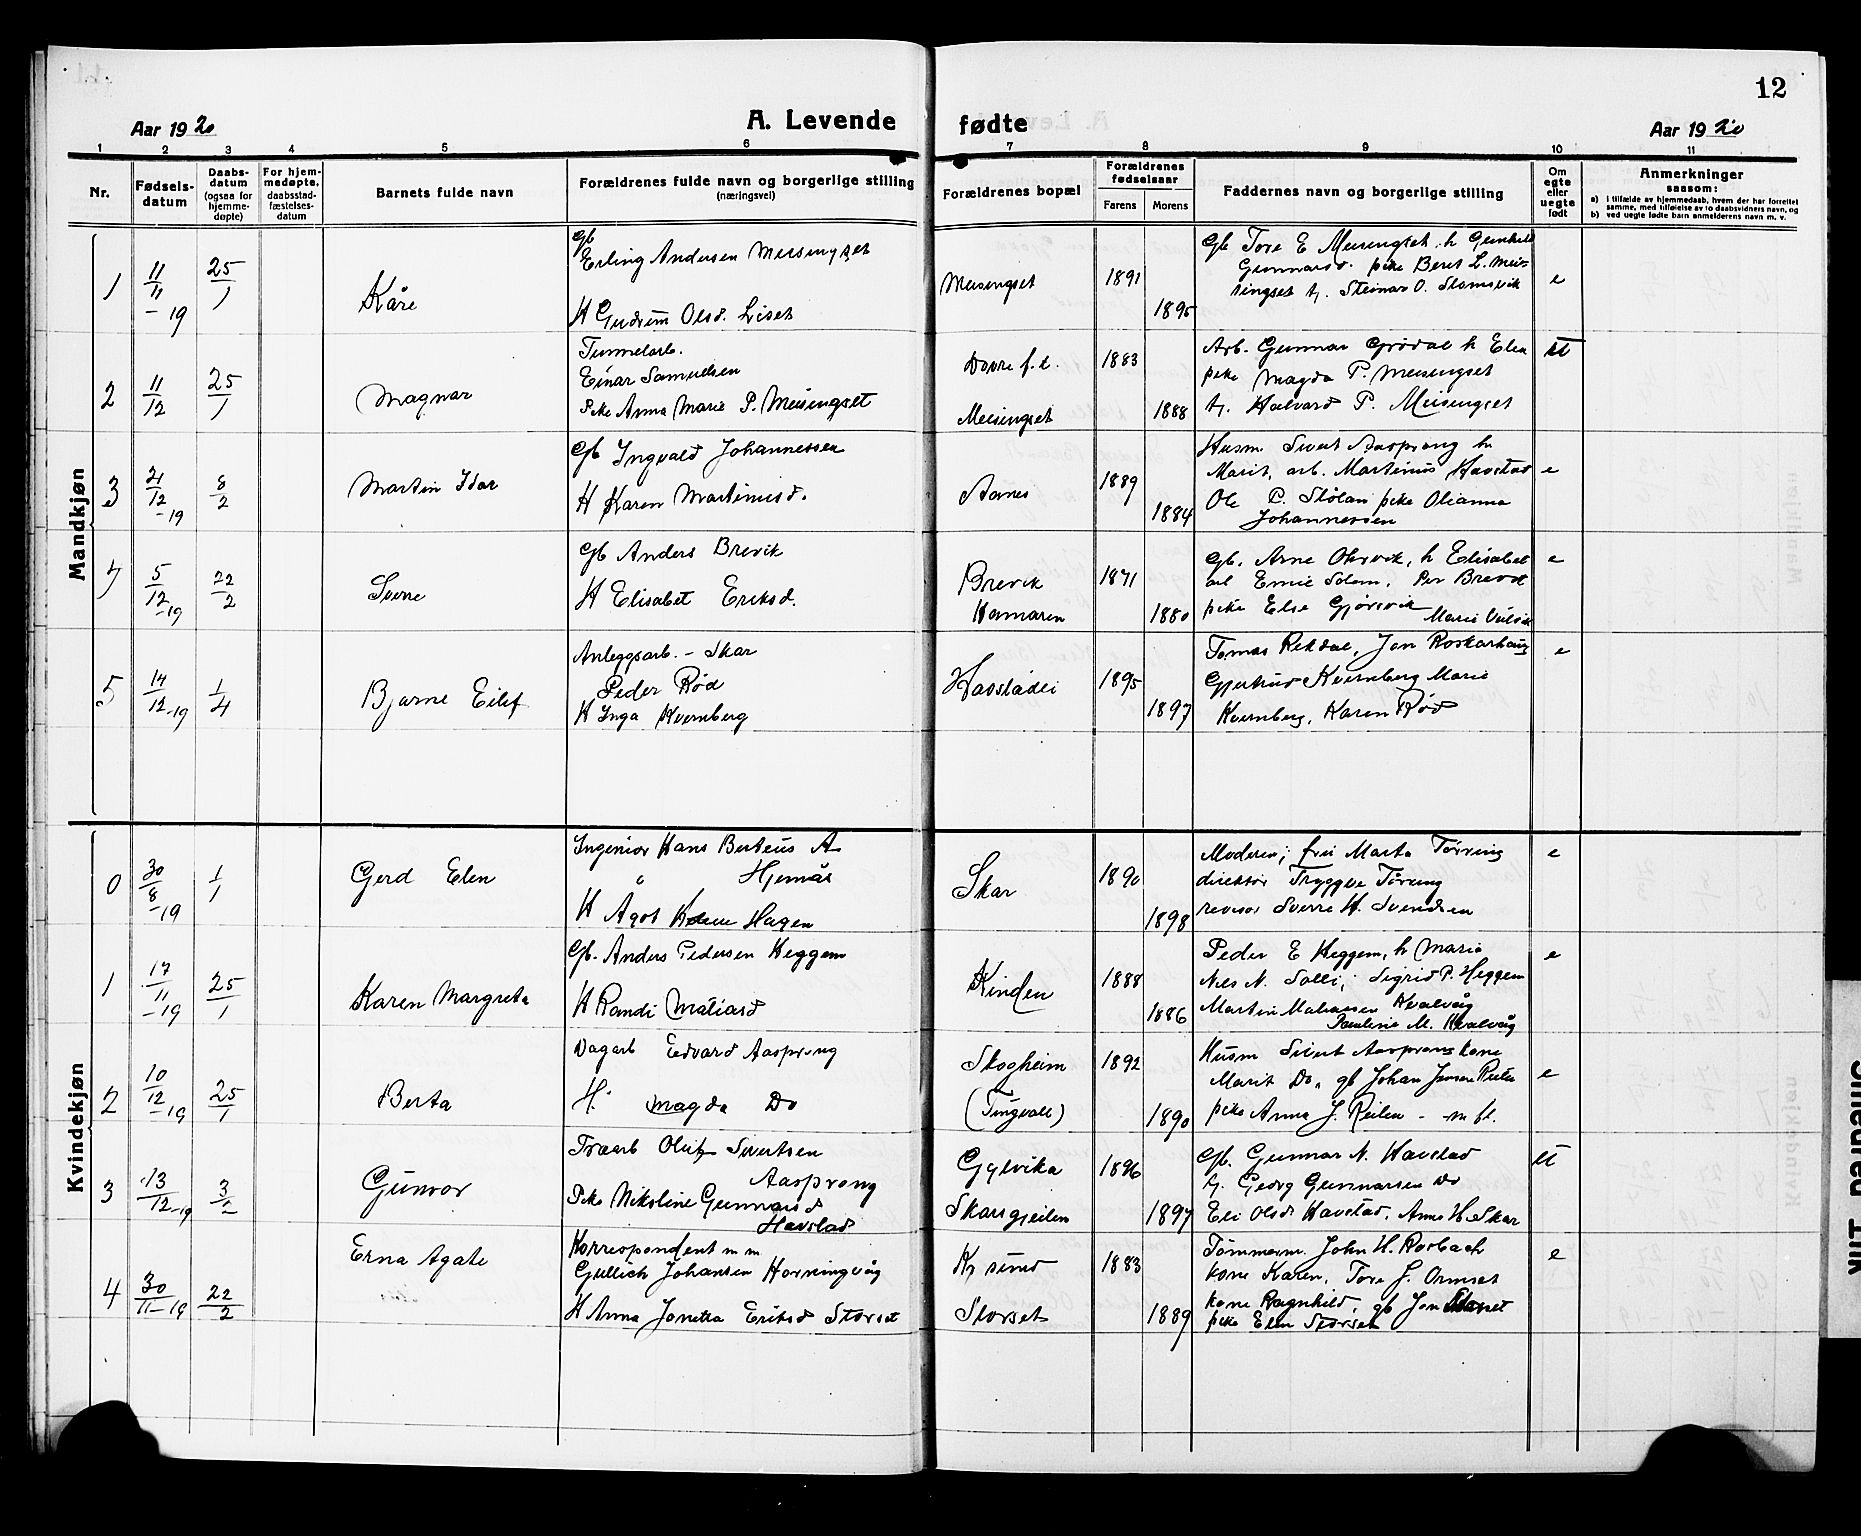 12
Aar 1920
A. Levende fødte
Aar 1920
1 2 3 4 5 6 7 8 9 10 11
Nr.
Fødsels-
datum
Daabs-
datum
(ogsaa for
hjemme-
døpte)
For hjem-
medøpte,
daabsstad-
fæstelses-
datum
Barnets fulde navn
Forældrenes fulde navn og borgerlige stilling
(næringsvei)
Forældrenes bopæl
Forældrenes
fødselsaar
Farens Morens
Faddernes navn og borgerlige stilling
Om
egte
eller
uegte
født
Anmerkninger
saasom:
a) i tilfælde av hjemmedaab, hvem der har forrettet
samme, med tilføielse av to daabsvidners navn, og
b) ved uegte fødte barn anmelderens navn m. v.
Mandkjøn
1 11/11-19 25/1 Kåre
Gb
Erling Andersen Meisingset
H Gudrun Olsd. Liset
Meisingset 1891 1895
Gb Tore E Meisingset. h Gunhild
Gunnarsd. pike Beret L. Mei-
singset u. Steinar O. Stomsvik
e
2 11/12 25/1 Magnar
Tunnelarb.
Einar Samuelsen
Pike Anna Marie P. Meisingset
Dovre f.t. 1883
Meisingset 1888
Arb. Gunnar Grødal h Elen
pike Magda P. Meisingset
u. Halvard P. Meisingset
u
3 21/12-19 8/2 Martin Idar
Gb Ingvald Johannessen
H Karen Martinusd.
Aarnes 1889 1884
Husm Sivert Aasprong h
Marit, arb. Martinus Havstad
Ole P. Stølan pike Olianna
Johannessen
e
4 5/12-19 22/2 Sverre
Gb Anders Brevik
H Elisabet Eriksd.
Brevik
Hamaren 1871 1880
Gb. Arne Okrvik, h Elisabet
arb Emil Solem. Per Brevik
pike Else Gjørsvik
Marie
e
5 14/12-19 1/4 Bjarne Eilef
Anleggsarb. - Skar
Peder Rød
H Inga Kvernberg
Havstadei 1895 1897
Tomas Rekdal, Jon Roskarhaug
Gjertrud Kvernberg Marie
Kvernberg, Karen Rød
e
Kvindekjøn
0 30/8-19 1/1 Gerd Elen
Ingeniør Hans Berteus A
Hjemås
H Ågot Hagen
Skar 1890 1898
Moderen; frü Marta Tørring
direktör Tryggve Töring
revisor Sverre H. Svendsen
e
1 17/11-19 25/1 Karen Margreta
Gb. Anders Pedersen Heggem
H Randi Matiasd
Kinden 1888 1886
Peder E Heggem, h Marie
Nils N. Solli; Sigrid P. Heggem
Martin Matiassen Kvalvåg
Pauline M. Kvalvåg
e
2 10/12-19 25/1 Berta
Dagarb Edvard Aasprong
H. Magda Do
Skogheim
(Tingvoll) 1892 1890
Husm Sivert Aasprong kone
Marit Do, gb Johan Jensen Reiten
pike Anna J. Reiten - m fl.
e
3 13/12-19 3/2 Gunvor
Træarb Oluf Sivertsen
Aasprong
Pike Nikoline Gunnarsd
Havstad
Gylvika 1896
Skarsgjeilen 1897
Gb. Gunnar N. Havstad
u. Georg Gunnarsen Do
Eli Olsd Havstad. Anne H. Skar
u
4 30/11-19 22/2 Erna Agate
Korrespondent m m
Gullich Johansen Honningvåg
H Anna Janetta Eriksd Storset
Kr sund 1883
Storset 1889
Tömmerm. John H. Rosbach
kone Karen, Tore J. Ormset
kone Ragnhild, gb Jon Storset
pike Elen Storset
e